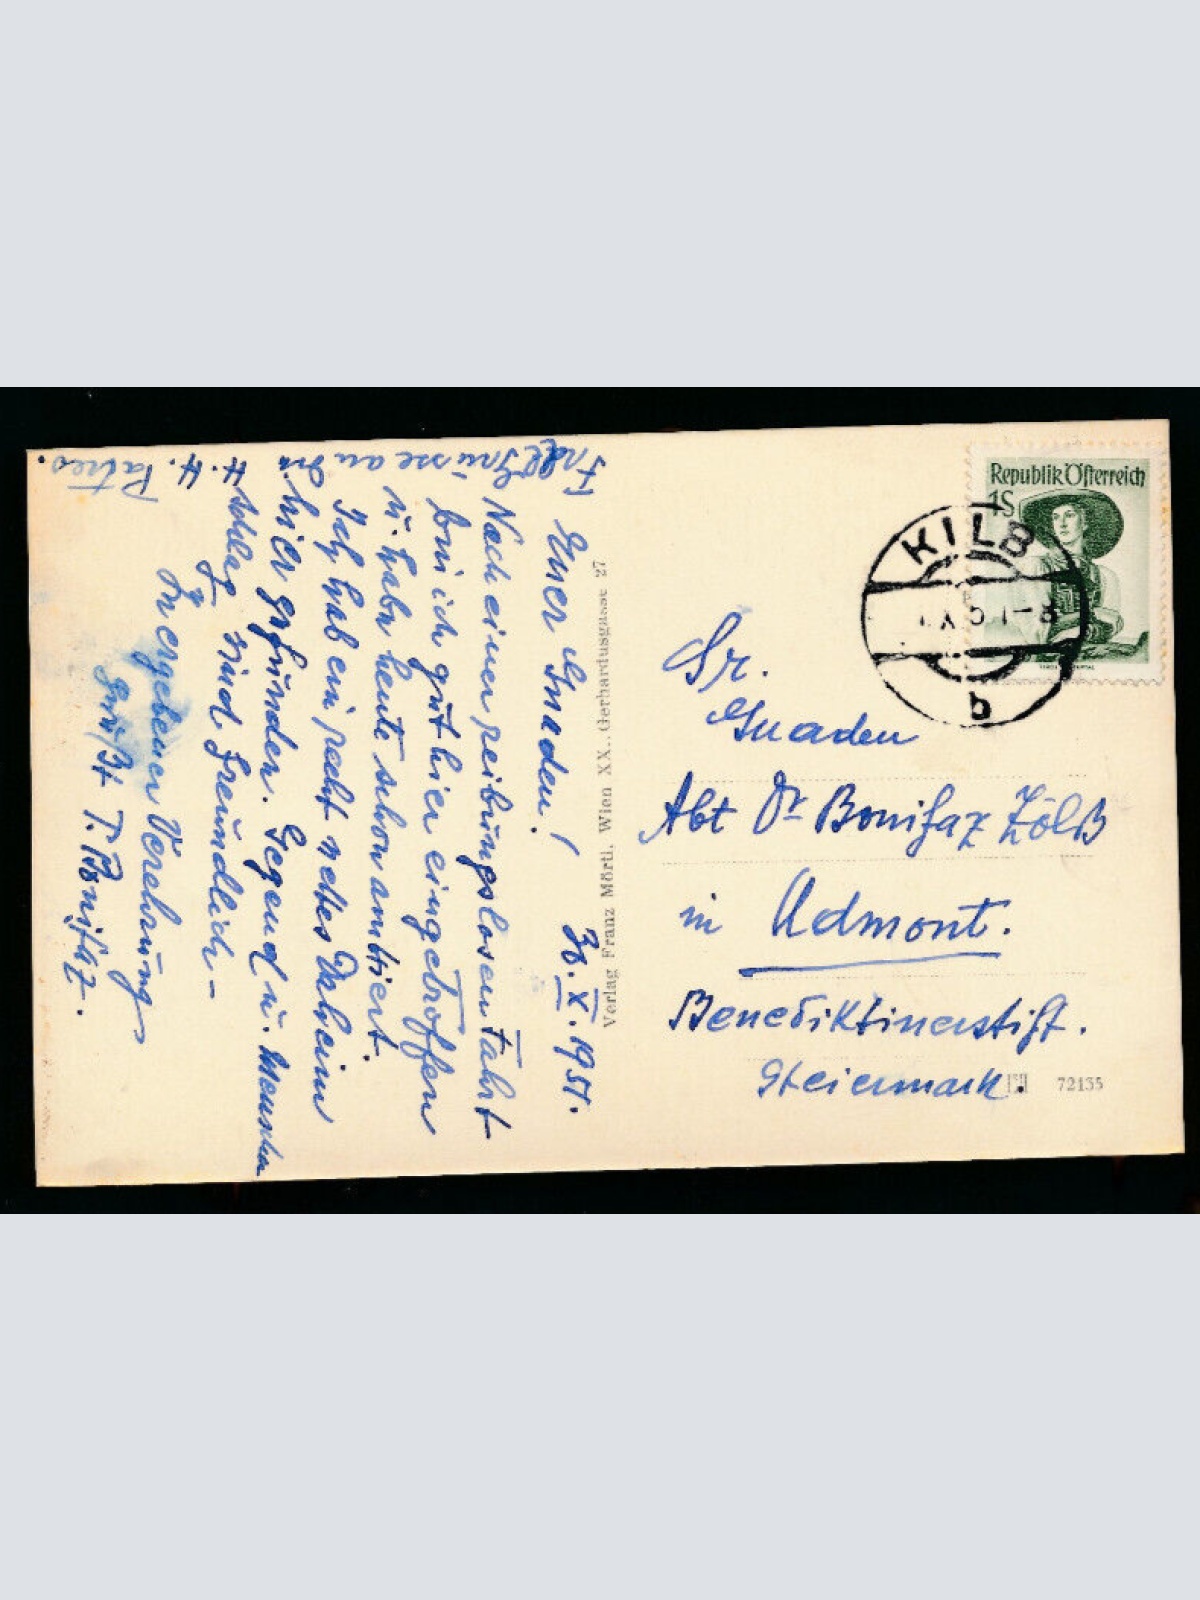 Euer Gnaden! 30. X. 1951.
Nach einer reibungslosen Fahrt
bin ich gut hier eingetroffen
u. habe heute schon amtiert.
Ich hab ein recht nettes Daheim
hier gefunden. Gegend u. Menschen
schlag sind freundlich –
In ergebener Verehrung
grüßt P. Bonifaz.
Frdl Grüsse an
H. H. Patres.
Verlag Franz Mörtl, Wien XX., Gerhardusgasse 27
Republik Österreich
1S
KILB
b
Sr.
Gnaden
Abt Dr Bonifaz Zölß
in Admont.
Benediktinerstift.
Steiermark.
72135